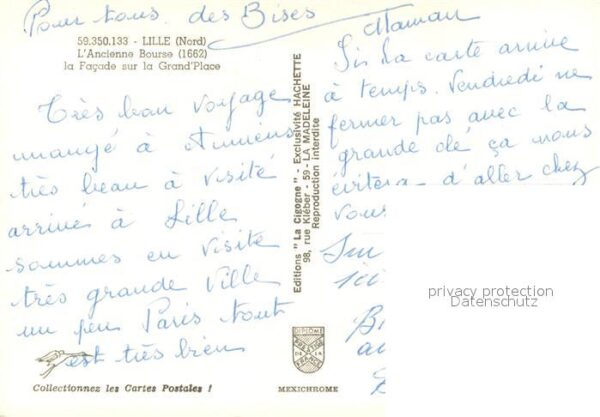 Pour tous des Bises
Maman
59.350.133 - LILLE (Nord)
L'Ancienne Bourse (1662)
la Façade sur la Grand'Place
Très beau voyage
mangé à Amiens
très beau à visité
arrivé à Lille
sommes en visite
très grande ville
un peu Paris tout
est très bien
Collectionnez les Cartes Postales !
Editions " La Cigogne " - Exclusivité HACHETTE
98, rue Kléber - 59 - LA MADELEINE
Reproduction interdite
DIPLOME
PRESTIGE
DE LA
FRANCE
MEXICHROME
Si la carte arrive
à temps. Vendredi ne
fermer pas avec la
grande clé ça nous
évitera d'aller chez
vous
ici
privacy protection
Datenschutz